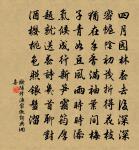 四月園林春去後深深
密幄陰初茂折得花枝
猶在手香滿袖葉間梅
子青如豆風雨時時添
氣候成行新筍霜筠厚
題就送春詩幾首聊對
酒櫻桃色照銀盤溜